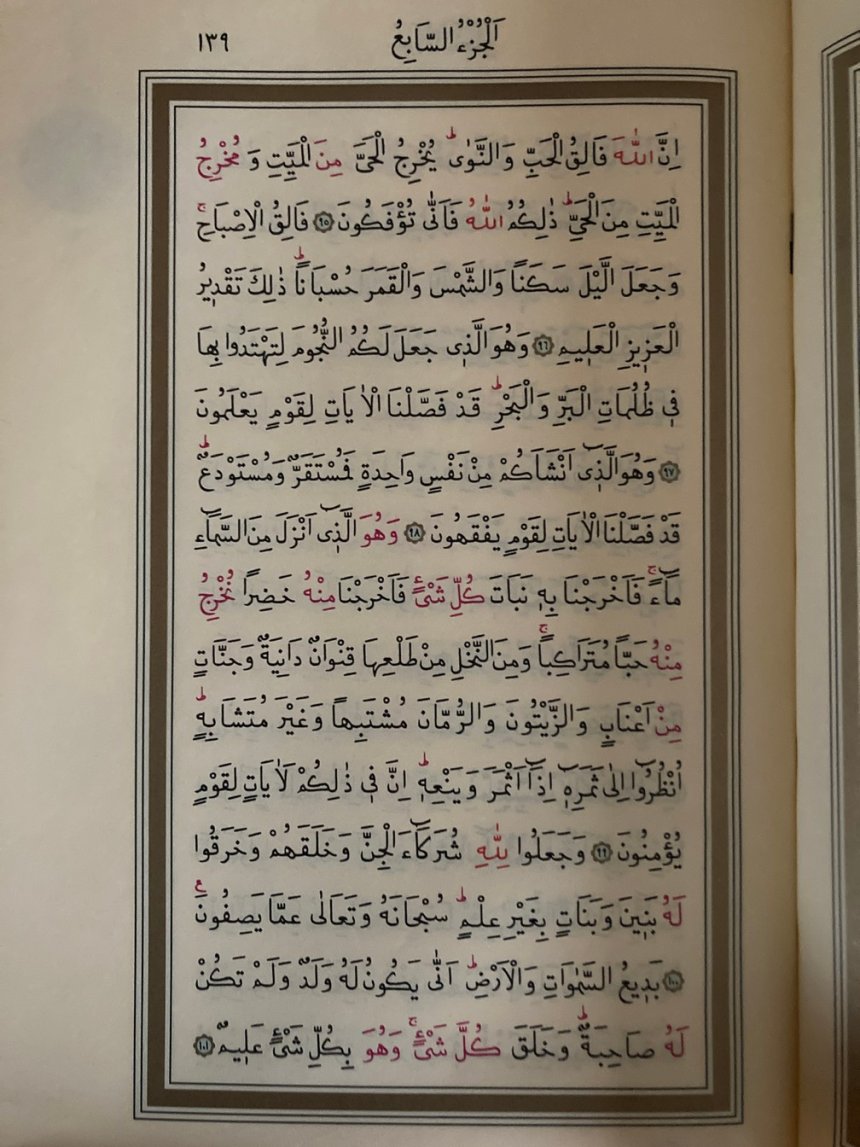 اَلْجُزْءُ السَّابِعُ ١٣٩
اِنَّ اللّٰهَ فَالِقُ الْحَبِّ وَالنَّوٰىۜ يُخْرِجُ الْحَيَّ مِنَ الْمَيِّتِ وَ مُخْرِجُ
الْمَيِّتِ مِنَ الْحَيِّۜ ذٰلِكُمُ اللّٰهُ فَاَنّٰى تُؤْفَكُونَ ﴿٩٥﴾ فَالِقُ الْاِصْبَاحِۚ
وَجَعَلَ الَّيْلَ سَكَناً وَالشَّمْسَ وَالْقَمَرَ حُسْبَاناًۜ ذٰلِكَ تَقْد۪يرُ
الْعَز۪يزِ الْعَل۪يمِ ﴿٩٦﴾ وَهُوَ الَّذ۪ي جَعَلَ لَكُمُ النُّجُومَ لِتَهْتَدُوا بِهَا
ف۪ي ظُلُمَاتِ الْبَرِّ وَالْبَحْرِۜ قَدْ فَصَّلْنَا الْاٰيَاتِ لِقَوْمٍ يَعْلَمُونَ
﴿٩٧﴾ وَهُوَ الَّذ۪ٓي اَنْشَاَكُمْ مِنْ نَفْسٍ وَاحِدَةٍ فَمُسْتَقَرٌّ وَمُسْتَوْدَعٌۜ
قَدْ فَصَّلْنَا الْاٰيَاتِ لِقَوْمٍ يَفْقَهُونَ ﴿٩٨﴾ وَهُوَ الَّذ۪ٓي اَنْزَلَ مِنَ السَّمَٓاءِ
مَٓاءًۚ فَاَخْرَجْنَا بِه۪ نَبَاتَ كُلِّ شَيْءٍ فَاَخْرَجْنَا مِنْهُ خَضِراً نُخْرِجُ
مِنْهُ حَباًّ مُتَرَاكِباًۚ وَمِنَ النَّخْلِ مِنْ طَلْعِهَا قِنْوَانٌ دَانِيَةٌ وَجَنَّاتٍ
مِنْ اَعْنَابٍ وَالزَّيْتُونَ وَالرُّمَّانَ مُشْتَبِهاً وَغَيْرَ مُتَشَابِهٍۜ
اُنْظُرُٓوا اِلٰى ثَمَرِه۪ٓ اِذَٓا اَثْمَرَ وَيَنْعِه۪ۜ اِنَّ ف۪ي ذٰلِكُمْ لَاٰيَاتٍ لِقَوْمٍ
يُؤْمِنُونَ ﴿٩٩﴾ وَجَعَلُوا لِلّٰهِ شُرَكَٓاءَ الْجِنَّ وَخَلَقَهُمْ وَخَرَقُوا
لَهُ بَن۪ينَ وَبَنَاتٍ بِغَيْرِ عِلْمٍۜ سُبْحَانَهُ وَتَعَالٰى عَمَّا يَصِفُونَ۟
﴿١٠٠﴾ بَد۪يعُ السَّمٰوَاتِ وَالْاَرْضِۜ اَنّٰى يَكُونُ لَهُ وَلَدٌ وَلَمْ تَكُنْ
لَهُ صَاحِبَةٌۜ وَخَلَقَ كُلَّ شَيْءٍۚ وَهُوَ بِكُلِّ شَيْءٍ عَل۪يمٌ ﴿١٠١﴾